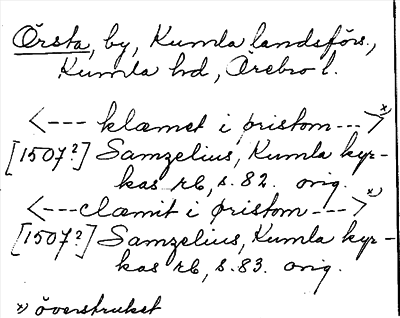 Örsta, by, Kumla landsförs.,
Kumla hd, Örebro l.
<--- klæmet i øristom --->x)
[1507?] Samzelius, Kumla kyr-
kas rb, s. 82. orig.
<--- clæmit i øristom --->x)
[1507?] Samzelius, Kumla kyr-
kas rb, s. 83. orig.
x) överstruket